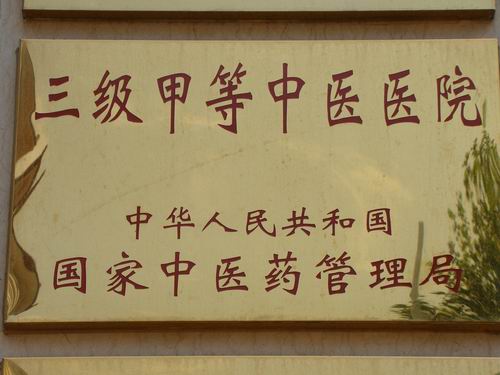 三级甲等中医医院
中华人民共和国
国家中医药管理局